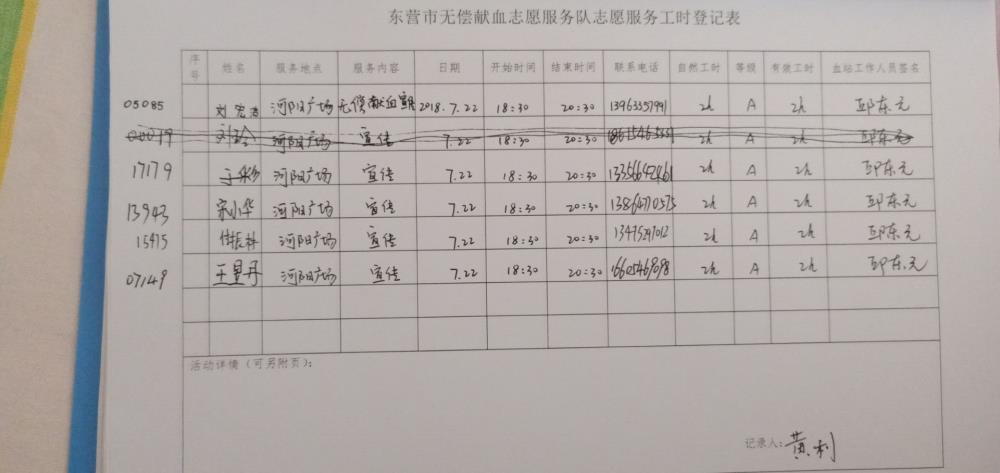 东营市无偿献血志愿服务队志愿服务工时登记表
序号 姓名 服务地点 服务内容 日期 开始时间 结束时间 联系电话 自然工时 等级 有效工时 血站工作人员签名
05085 刘宏 河阳广场 无偿献血宣传 2018.7.22 18:30 20:30 13963357991 2h A 2h 邱东元
00079 刘玲 河阳广场 宣传 7.22 18:30 20:30 2h A 2h 邱东元
17179 于彩 河阳广场 宣传 7.22 18:30 20:30 2h A 2h 邱东元
13943 宋小华 河阳广场 宣传 7.22 18:30 20:30 13864770575 2h A 2h 邱东元
15475 河阳广场 宣传 7.22 18:30 20:30 13475297012 2h A 2h 邱东元
07149 王昱丹 河阳广场 宣传 7.22 18:30 20:30 16605469098 2h A 2h 邱东元
活动详情（可另附页）：
记录人：黄利